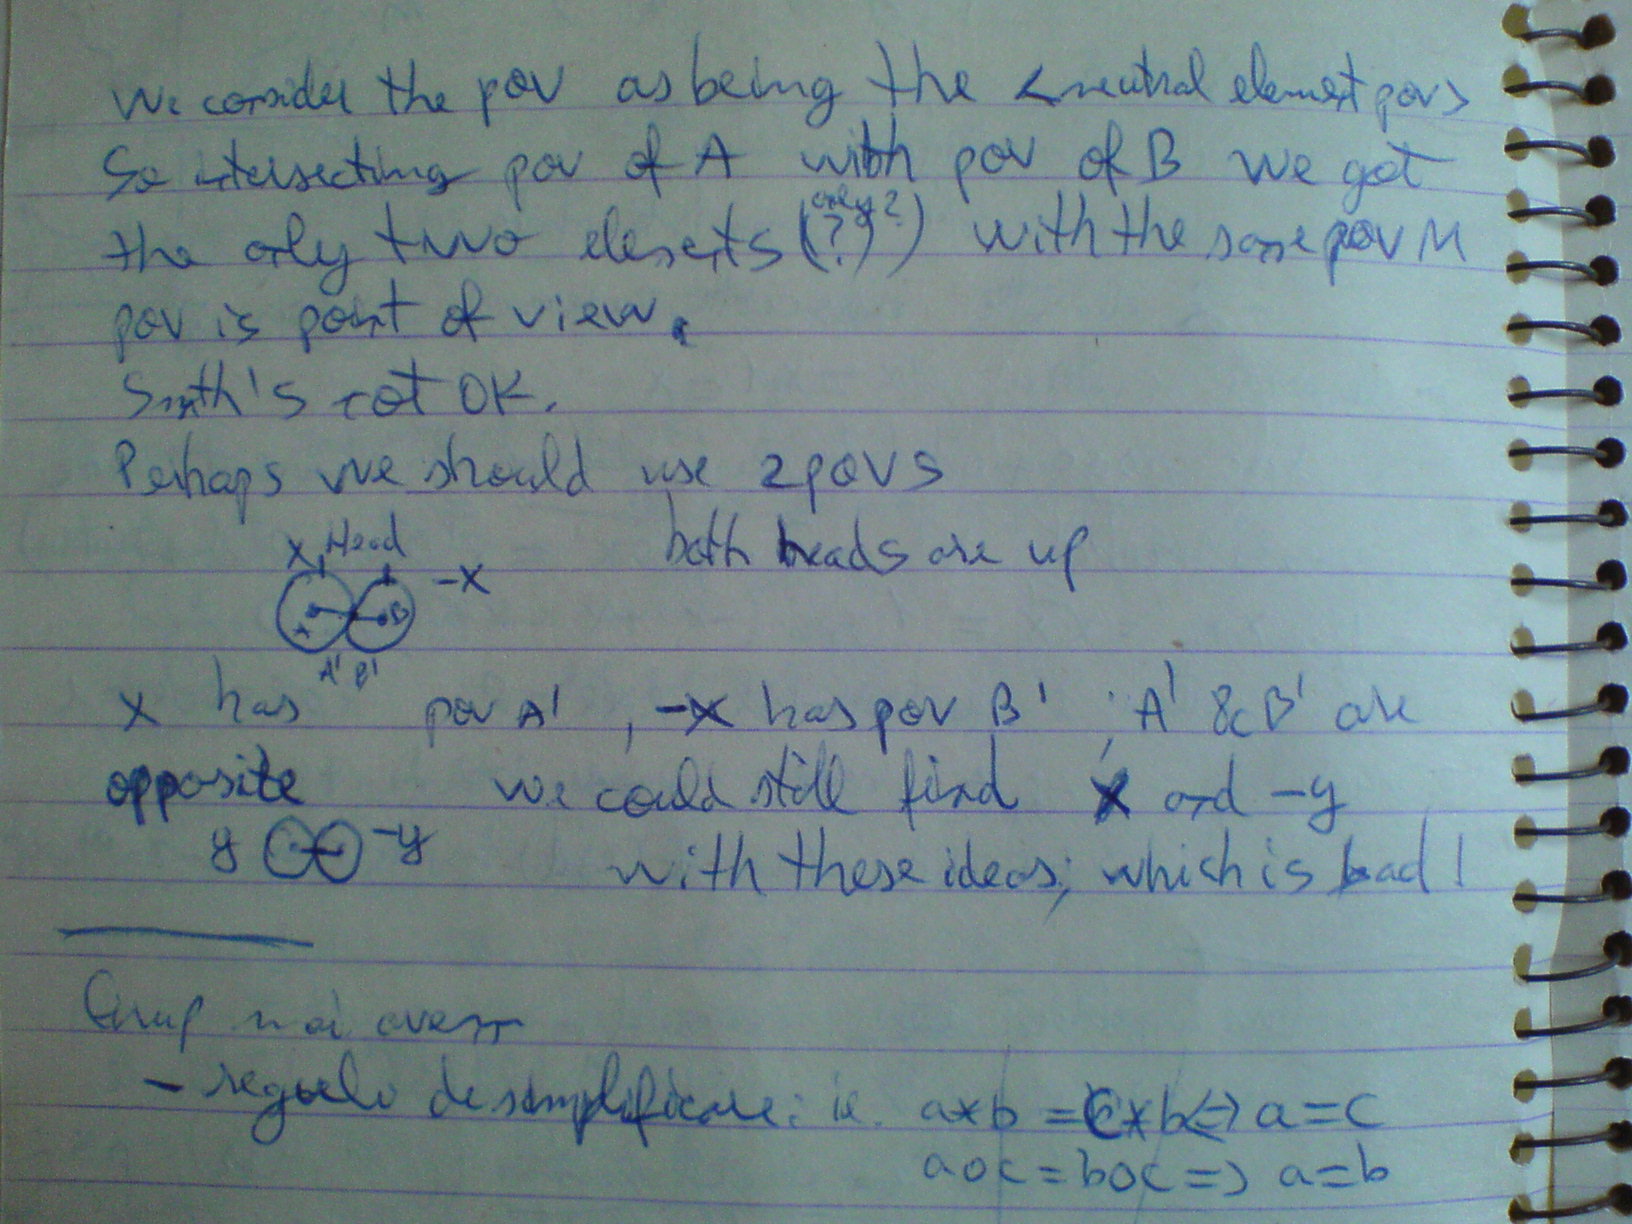 We consider the pov as being the <neutral element pov>
So intersecting pov of A with pov of B we get
the only two elements (only 2 ??) with the same pov M
pov is point of view.
Smth's not OK.
Perhaps we should use 2 povs
x Head both heads are up
-x
A B
A' B'
x has pov A', -x has pov B'; A' & B' are
opposite we could still find x and -y
y -y with these ideas; which is bad!
mai avem
- regula de simplificare: ie. a*b = c*b <=> a=c
aoc = boc => a=b